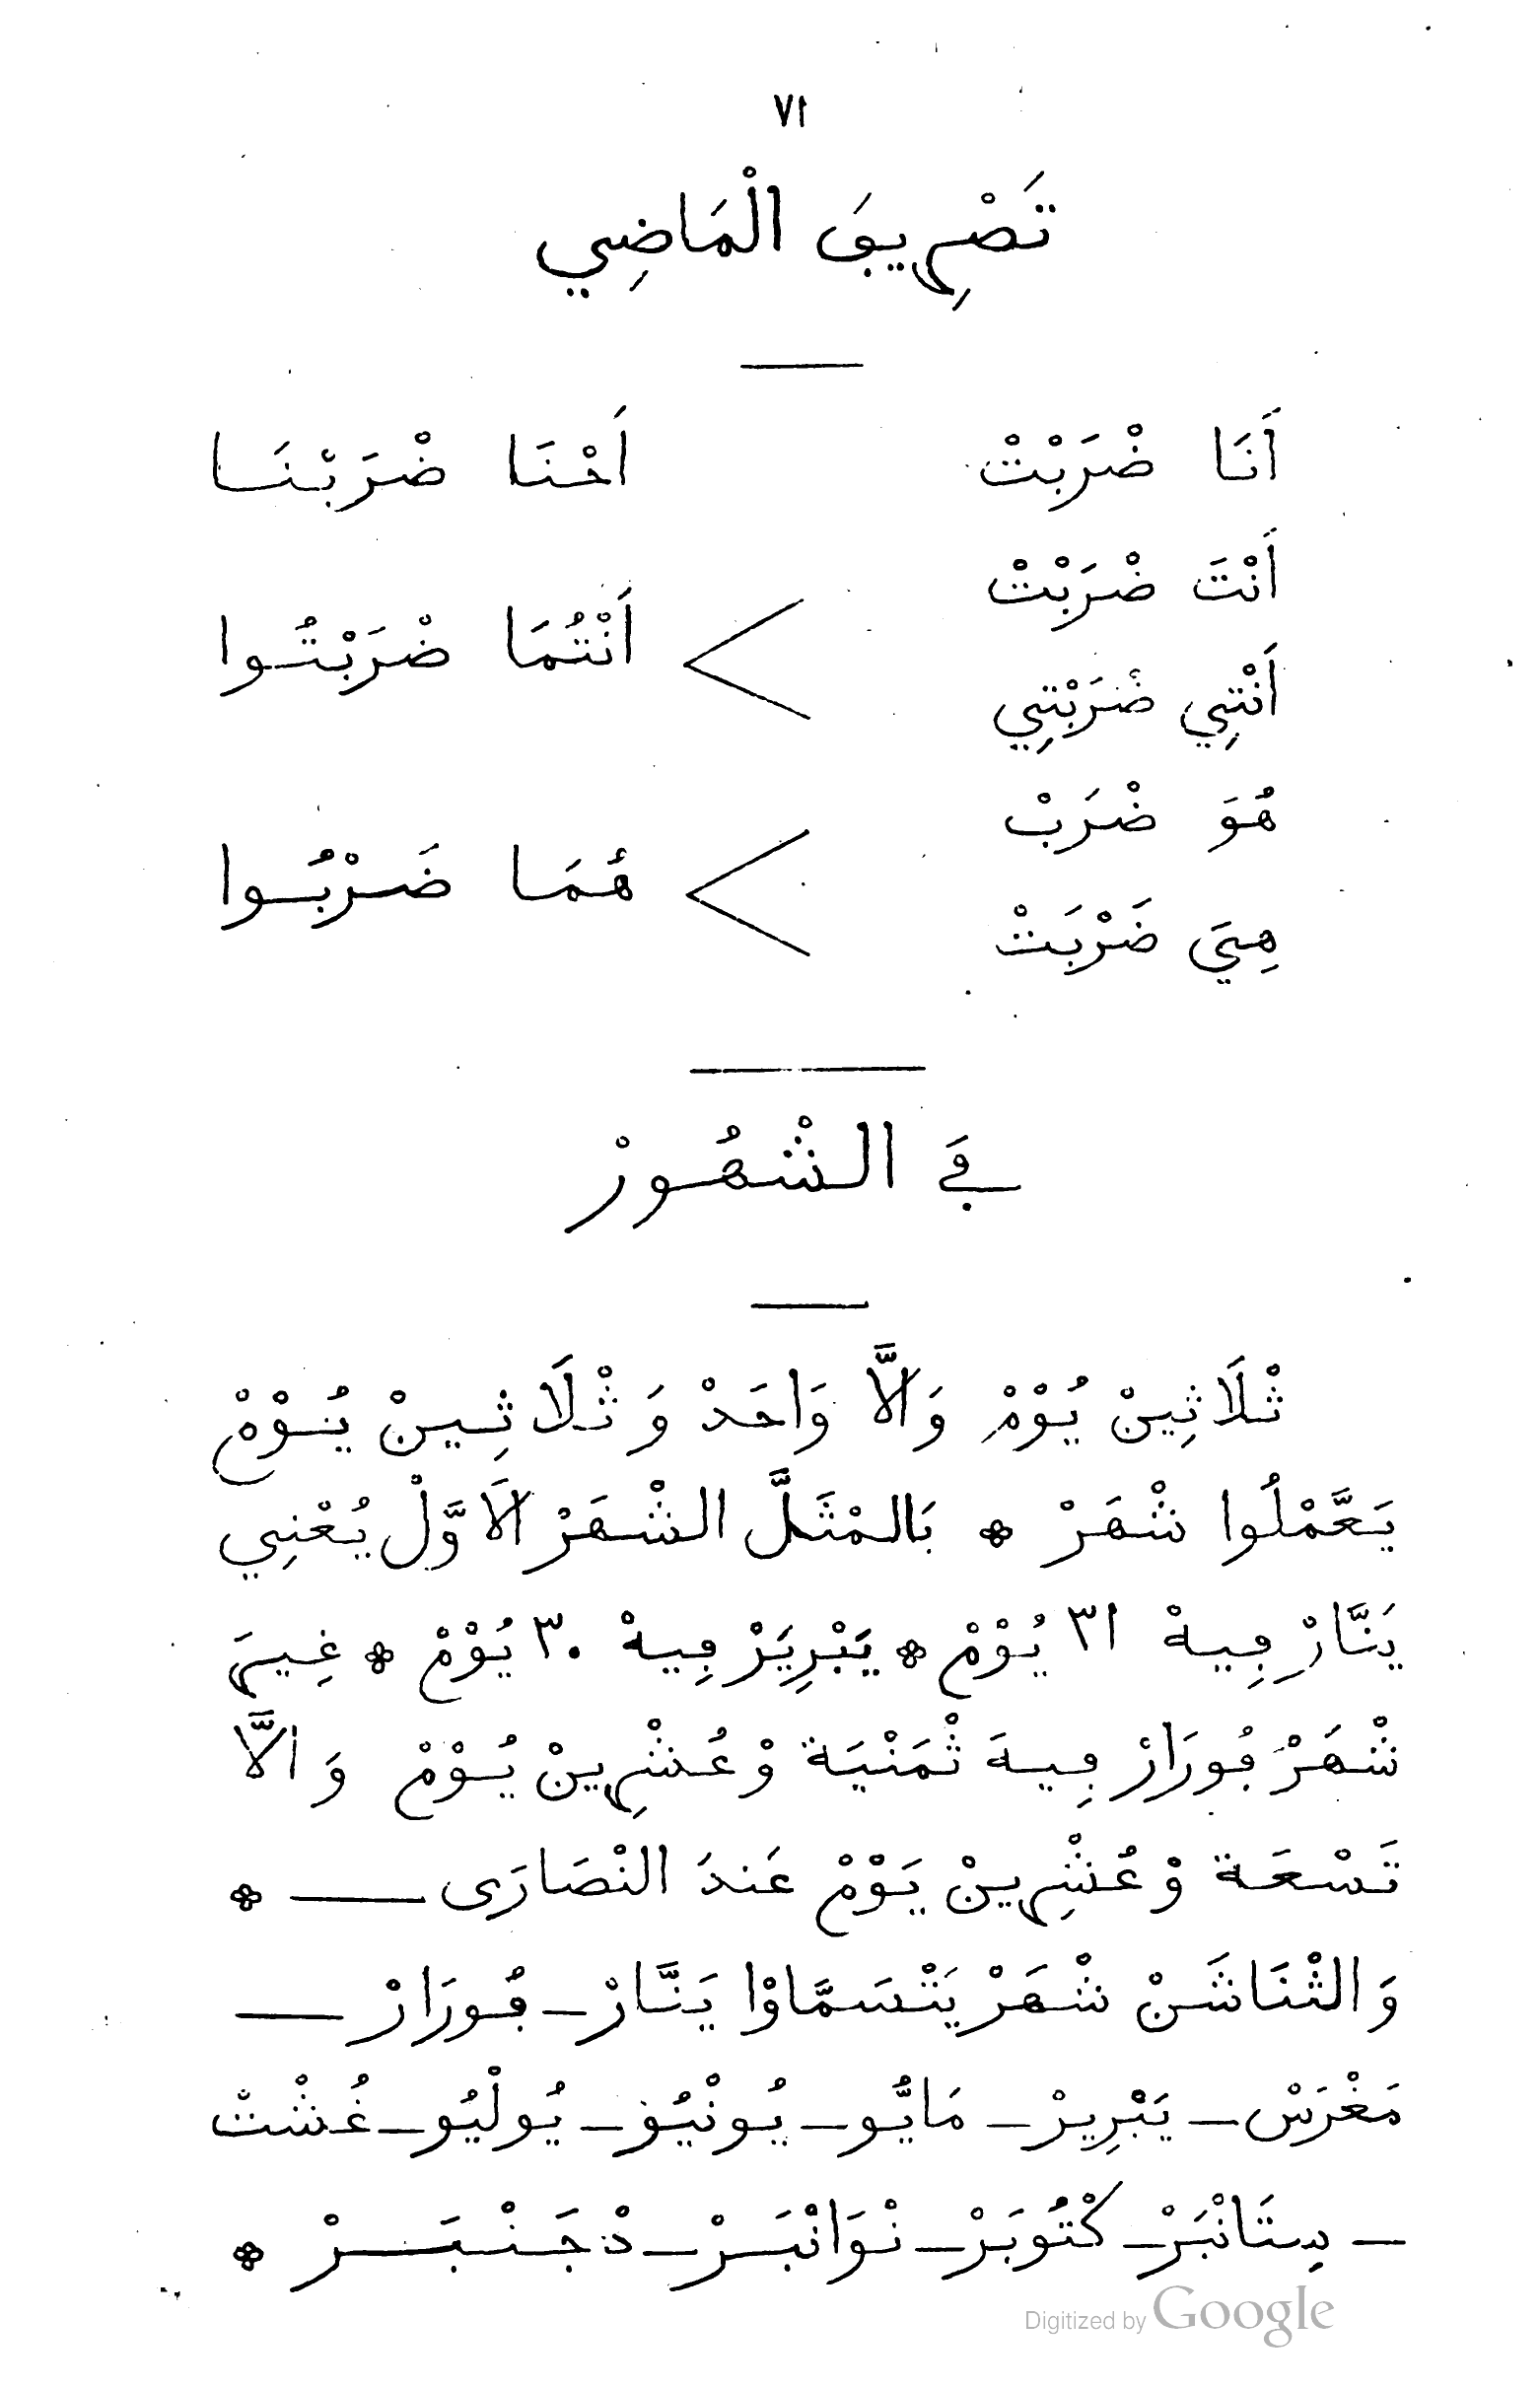 ٧١
تَصْرِيڢَ الْمَاضِي
أَنَا ضْرَبْتْ أَحْنَا ضْرَبْنَا
أَنْتَ ضْرَبْتْ
أَنْتُمَا ضْرَبْتُوا
أَنْتِي ضْرَبْتِي
هُوَ ضْرَبْ
هُمَا ضَرْبُوا
هِيَ ضَرْبَتْ
ڢَي الشْهُورْ
ثْلَاثِينْ يُوْمْ وَالَّا وَاحَدْ وَ ثْلَاثِينْ يُوْمْ
يَعَّمْلُوا شْهَرْ * بَالمْثَلَّ الشْهَرْ الَاوَّلْ يُعْنِي
يَنَّارْ ڢِيهْ ٣١ يُوْمْ * يَبْرِيَرْ ڢِيهْ ٣٠ يُوْمْ * غِيرَ
شْهَرْ ڢُورَارْ ڢِيهَ ثْمَنْيَة وْ عُشْرِينْ يُوْمْ وَ الَّا
تَسْعَة وْ عُشْرِينْ يَوْمْ عَندَ النْصَارَى ـــ *
وَ الثْنَاشَنْ شْهَرْ يَتْسَمَّاوْا يَنَّارْ ـ ڢُورَارْ ـــ
مَغْرَسْ ـ يَبْرِيرْ ـ مَايُّو ـ يُونْيُو ـ يُولْيُو ـ غُشْتْ
ـ سِتَانْبَرْ ـ كْتُوبَرْ ـ نْوَانْبَرْ ـ دْجَنْبَرْ *
Digitized by Google